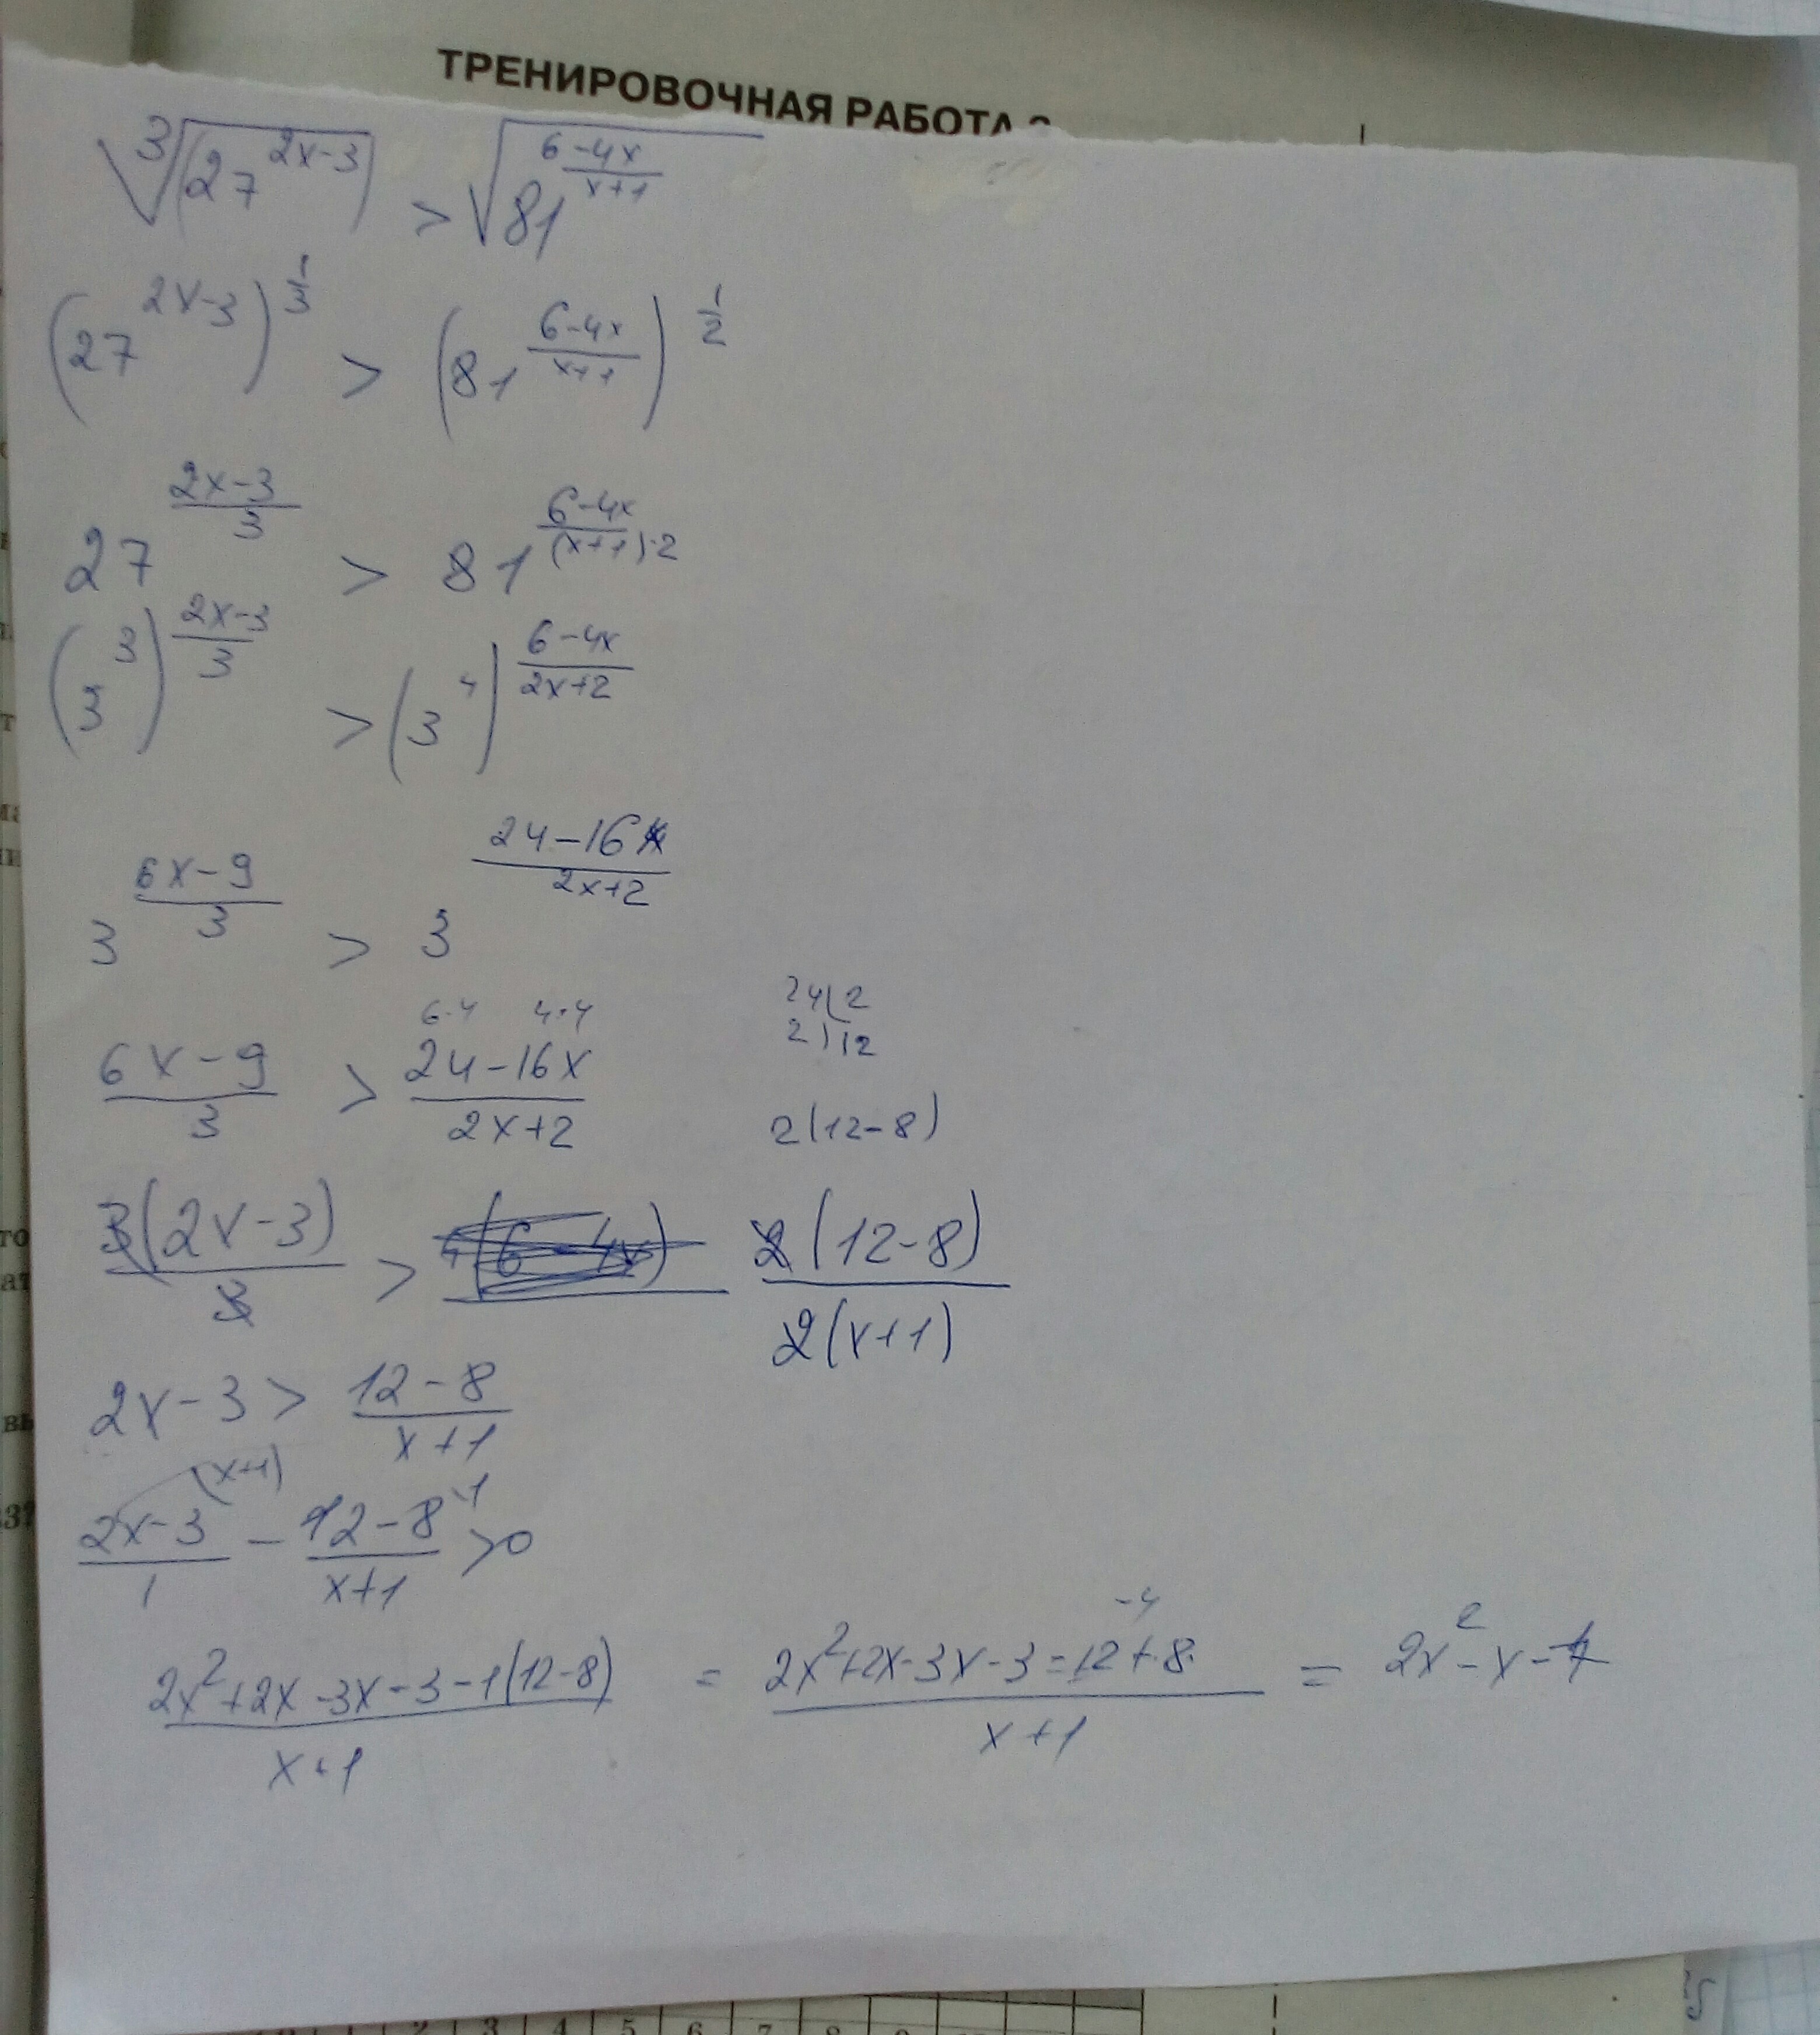 ТРЕНИРОВОЧНАЯ РАБОТА
∛(27^(2x-3)) > √(81^((6-4x)/(x+1)))
(27^(2x-3))^(1/3) > (81^((6-4x)/(x+1)))^(1/2)
27^((2x-3)/3) > 81^((6-4x)/((x+1)·2))
(3^3)^((2x-3)/3) > (3^4)^((6-4x)/(2x+2))
3^((6x-9)/3) > 3^((24-16x)/(2x+2))
6·4 4·4
(6x-9)/3 > (24-16x)/(2x+2)
24 2
2) 12
2(12-8)
3(2x-3)/3 > 2(12-8)/(2(x+1))
2x-3 > (12-8)/(x+1)
(2x-3)/1 (x+1) - (12-8)/(x+1) ·1 >0
(2x²+2x-3x-3-1(12-8))/(x+1) = (2x²+2x-3x-3-12+8)/(x+1) = 2x²-x-
-4
2 3 4 5 6 7 8 9